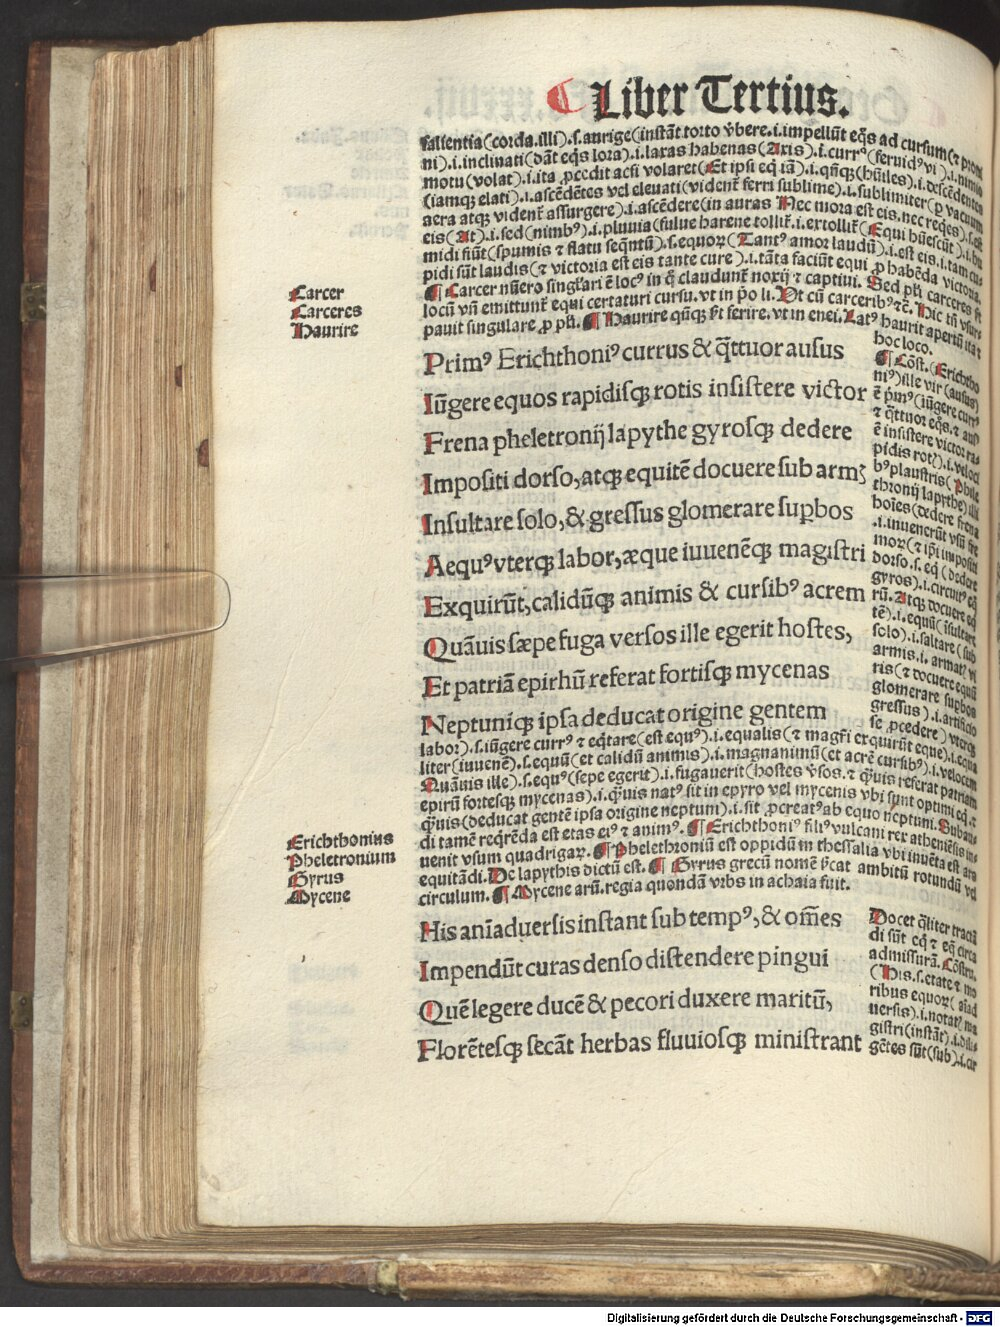 Liber Tertius.
salientia(corda.illi).ſ.aurige(inſtãt torto v̓bere.i.impellũt eq̃s ad curſum(⁊ proni
ni).i.inclinati(dãt eq̃s lora).i.laxas habenas(Axis).i.currꝰ(feruidꝰvi).i.nimio
motu(volat).i.ita ꝓcedit acſi volaret(Et ipſi eq̃ iã).i.qñqꝫ(hũiles).i.deſcẽdentes
(iamqꝫ elati).i.aſcẽdẽtes vel eleuati(vident̃ ferri ſublime).i.ſublimiter(ꝑ vacuum
aera atqꝫ vident̃ aſſurgere).i.aſcẽdere(in auras Nec mora eſt eis.nec req̃es).ſ.eſt
eis(At).i.ſed(nimbꝰ).i.pluuia(fulue harene tollit̃.i.extollit̃(Equi hũeſcũt).i.hu
midi fiũt(ſpumis ⁊ flatu ſeq̃ntũ).ſ.equoꝝ(Tantꝰ amor laudũ).i.eſt eis.i.tam cu
pidi ſũt laudis(⁊ victoria eſt eis tante cure).i.tãta faciũt equi ꝓ habẽda victoria.
¶ Carcer nũero ſingl̃ari ẽ locꝰ in q̃ claudunt̃ noxij ⁊ captiui. Sed pl̃i carceres ſt
locũ vñ emittunt̃ equi certaturi curſu.vt in p̃o li. Vt cũ carceribꝰ⁊c̃. Hic tñ vſur
pauit ſingulare ꝓ pl̃i. ¶ Haurire qñqꝫ ſt̃ ferire.vt in enei. Latꝰ haurit apertũ ita ⁊
hoc loco.
Carcer
Carceres
Haurire
Primꝰ Erichthoniꝰ currus & q̃ttuor auſus
Iũgere equos rapidiſqꝫ rotis inſiſtere victor
Frena pheletronij lapythe gyroſqꝫ dedere
Impoſiti dorſo, atqꝫ equitẽ docuere ſub armꝫ
Inſultare ſolo, & greſſus glomerare ſuꝑbos
Aequꝰ vterqꝫ labor, æque iuuenẽqꝫ magiſtri
Exquirũt, calidũqꝫ animis & curſibꝰ acrem
Quãuis ſæpe fuga verſos ille egerit hoſtes,
Et patriã epirhũ referat fortiſqꝫ mycenas
Neptuniqꝫ ipſa deducat origine gentem
¶ Cõſt.(Erichtho
niꝰ)ille vir(auſus)
ẽ p̃mꝰ(iũgere curr̃
⁊ q̃ttuor eq̃s.⁊ auſꝰ
ẽ inſiſtere victor ra
pidis rotꝫ).i.veloci
bꝰ plauſtris(Phile
thronij lapythe)illi
hoĩes(dedere frena
.i.inuenerũt vſũ fre
noꝝ(⁊ ip̃i impoſiti
dorſo.ſ.eq̃(dedere
gyros).i.circuitꝰ eq̃
rũ.Atqꝫ docuere eq̃
tẽ).i.equũ(ĩſultare
ſolo).i.ſaltare(ſub
armis.i.armatꝫ vi
ris(⁊ docuere equũ
glomerare ſuꝑbos
greſſus).i.artificio
ſe ꝓcedere)vterqꝫ
labor).ſ.iũgere currꝰ ⁊ eq̃tare(eſt equꝰ).i.equalis(⁊ magr̃i exquirũt eque).i.equa
liter(iuuenẽ).ſ.equũ(et calidũ animis).i.magnanimũ(et acrẽ curſibꝰ).i.velocem
Quãuis ille).ſ.equꝰ(ſepe egerit).i.fugauerit(hoſtes v̓ſos.⁊ q̃uis referat patriam
epirũ forteſqꝫ mycenas).i.q̃uis natꝰ ſit in epyro vel mycenis vbi ſunt optimi eq̃.⁊
q̃uis(deducat gentẽ ipſa origine neptuni).i.ſit ꝓcreatꝰ ab equo neptuni.Subau
di tamẽ reqr̃ẽda eſt etas eiꝰ ⁊ animꝰ. ¶ Erichthoniꝰ filiꝰ vulcani rex athẽiẽſis in
uenit vſum quadrigaꝝ. ¶ Phelethroniũ eſt oppidũ in theſſalia vbi inuẽta eſt ars
equitãdi.De lapythis dictũ eſt. ¶ Gyrus grecũ nomẽ ſ̓cat ambitũ rotundũ vel
circulum. ¶ Mycene arũ.regia quondã vrbs in achaia fuit.
Erichthonius
Pheletronium
Gyrus
Mycene
His anĩaduerſis inſtant ſub tempꝰ, & om̃es
Impendũt curas denſo diſtendere pingui
Quẽ legere ducẽ & pecori duxere maritũ,
Florẽteſqꝫ ſecãt herbas fluuioſqꝫ miniſtrant
Docet q̃liter tractã
di ſũt eq̃ ⁊ eq̃ circa
admiſſurã. Cõſtru.
(His.ſ.etate ⁊ mo
ribus equoꝝ(aĩad
uerſis).i.notatꝫ ma
giſtri(inſtãt).i.dili
gẽtes ſũt(ſub).i.cir
Digitalisierung gefördert durch die Deutsche Forschungsgemeinschaft - DFG